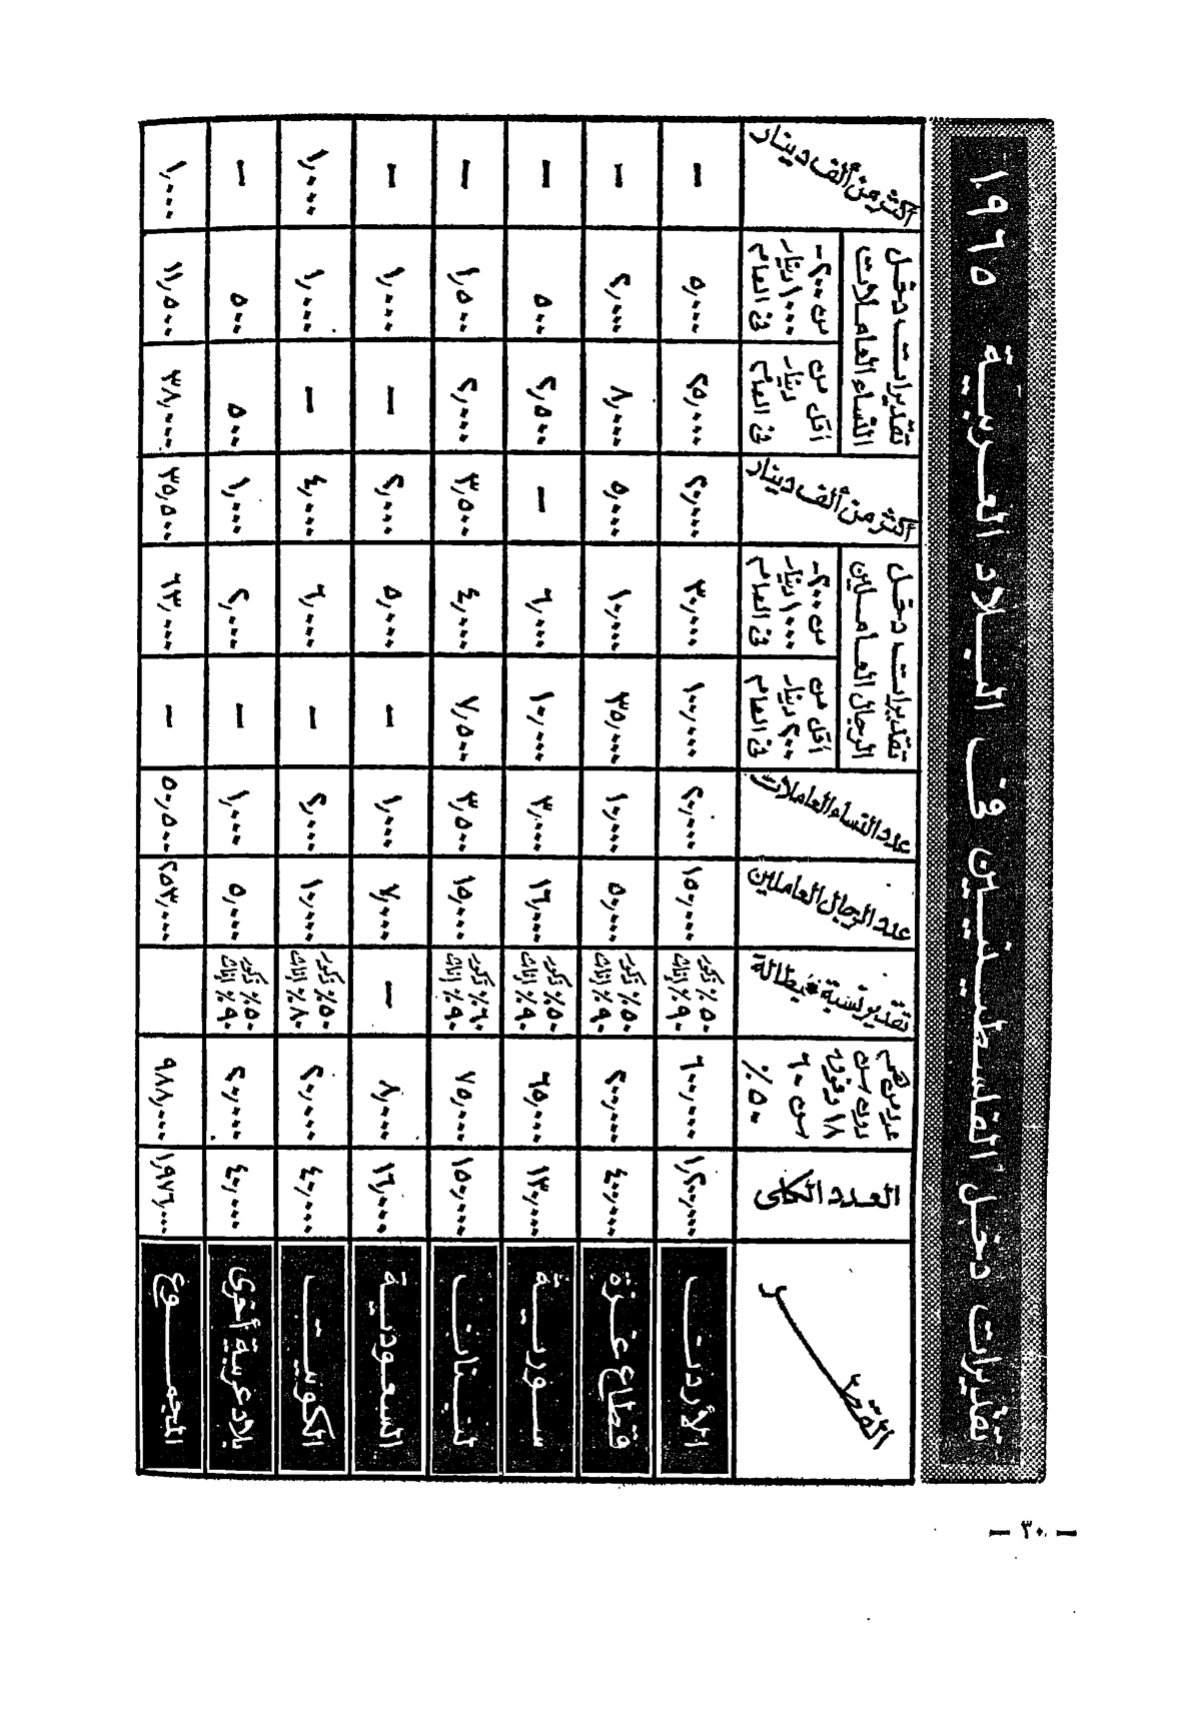 تقديرات دخل الفلسطينيين في البلاد العربية ١٩٦٥
القطر
العدد الكلي
عدد من هم دون سن ١٨ وفوق سن ٦٠ ٥٠٪
تقدير نسبة البطالة
عدد الرجال العاملين
عدد النساء العاملات
تقديرات دخل الرجال العاملين
أقل من ٢٠٠ دينار في العام
من ٢٠٠ - ١٠٠٠ دينار في العام
أكثر من ألف دينار
تقديرات دخل النساء العاملات
أقل من دينار في العام
من ٢٠٠ - ١٠٠٠ دينار في العام
أكثر من ألف دينار
الأردن ١,٢٠٠,٠٠٠ ٦٠٠,٠٠٠ ٥٠٪ ذكور ٩٠٪ إناث ١٥٠,٠٠٠ ٢٠,٠٠٠ ١٠٠,٠٠٠ ٣٠,٠٠٠ ٢٠,٠٠٠ ٢٥,٠٠٠ ٥,٠٠٠ —
قطاع غزة ٤٠٠,٠٠٠ ٢٠٠,٠٠٠ ٥٠٪ ذكور ٩٠٪ إناث ٥٠,٠٠٠ ١٠,٠٠٠ ٣٥,٠٠٠ ١٠,٠٠٠ ٥,٠٠٠ ٨,٠٠٠ ٢,٠٠٠ —
سورية ١٣٠,٠٠٠ ٦٥,٠٠٠ ٥٠٪ ذكور ٩٠٪ إناث ١٦,٠٠٠ ٣,٠٠٠ ١٠,٠٠٠ ٦,٠٠٠ — ٢,٥٠٠ ٥٠٠ —
لبنان ١٥٠,٠٠٠ ٧٥,٠٠٠ ٦٠٪ ذكور ٩٠٪ إناث ١٥,٠٠٠ ٣,٥٠٠ ٧,٥٠٠ ٤,٠٠٠ ٣,٥٠٠ ٢,٠٠٠ ١,٥٠٠ —
السعودية ١٦,٠٠٠ ٨,٠٠٠ — ٧,٠٠٠ ١,٠٠٠ — ٥,٠٠٠ ٢,٠٠٠ — ١,٠٠٠ —
الكويت ٤٠,٠٠٠ ٢٠,٠٠٠ ٥٠٪ ذكور ٨٠٪ إناث ١٠,٠٠٠ ٢,٠٠٠ — ٦,٠٠٠ ٤,٠٠٠ — ١,٠٠٠ ١,٠٠٠
بلاد عربية أخرى ٤٠,٠٠٠ ٢٠,٠٠٠ ٥٠٪ ذكور ٩٠٪ إناث ٥,٠٠٠ ١,٠٠٠ — ٢,٠٠٠ ١,٠٠٠ ٥٠٠ ٥٠٠ —
المجموع ١,٩٧٦,٠٠٠ ٩٨٨,٠٠٠ ٢٥٣,٠٠٠ ٥٠,٥٠٠ — ٦٣,٠٠٠ ٣٥,٥٠٠ ٣٨,٠٠٠ ١١,٥٠٠ ١,٠٠٠
— ٣٠ —